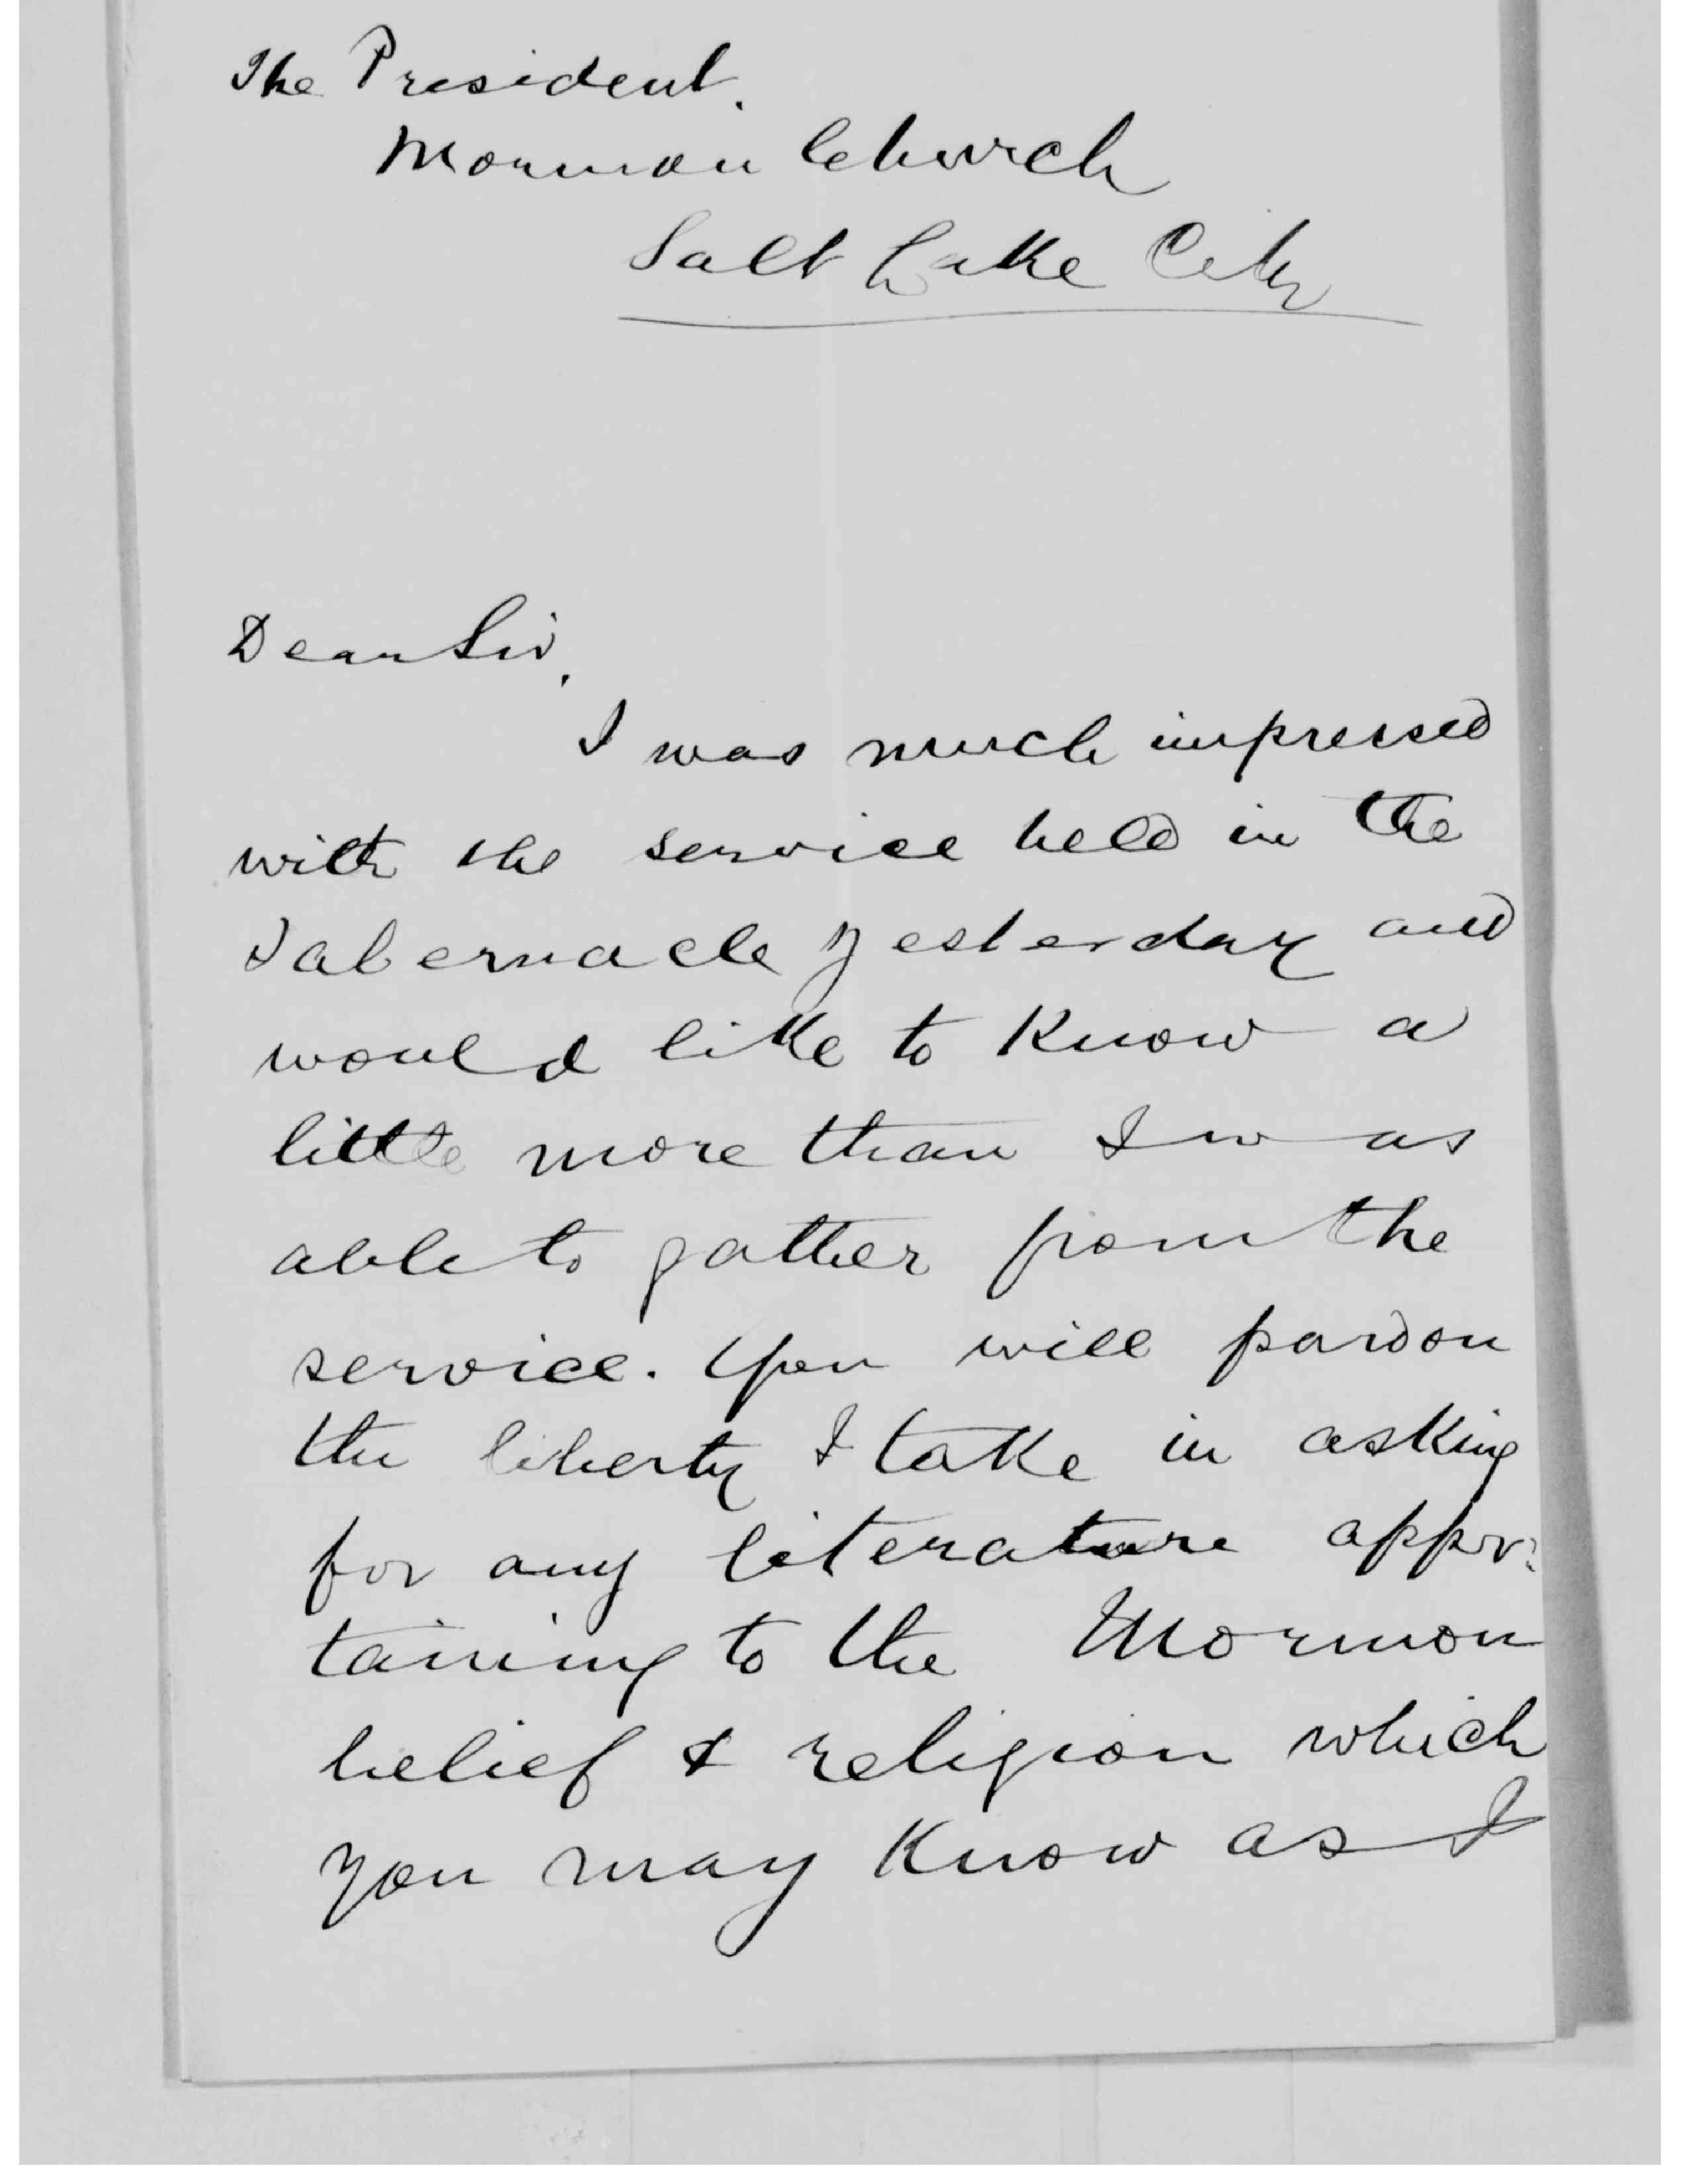 The President.
Mormon Church
Salt Lake City
Dear Sir,
I was much impressed
with the service held in the
Tabernacle yesterday and
would like to know a
little more than I was
able to gather from the
service. You will pardon
the liberty I take in asking
for any literature apper:
taining to the Mormon
belief & religion which
you may know as I